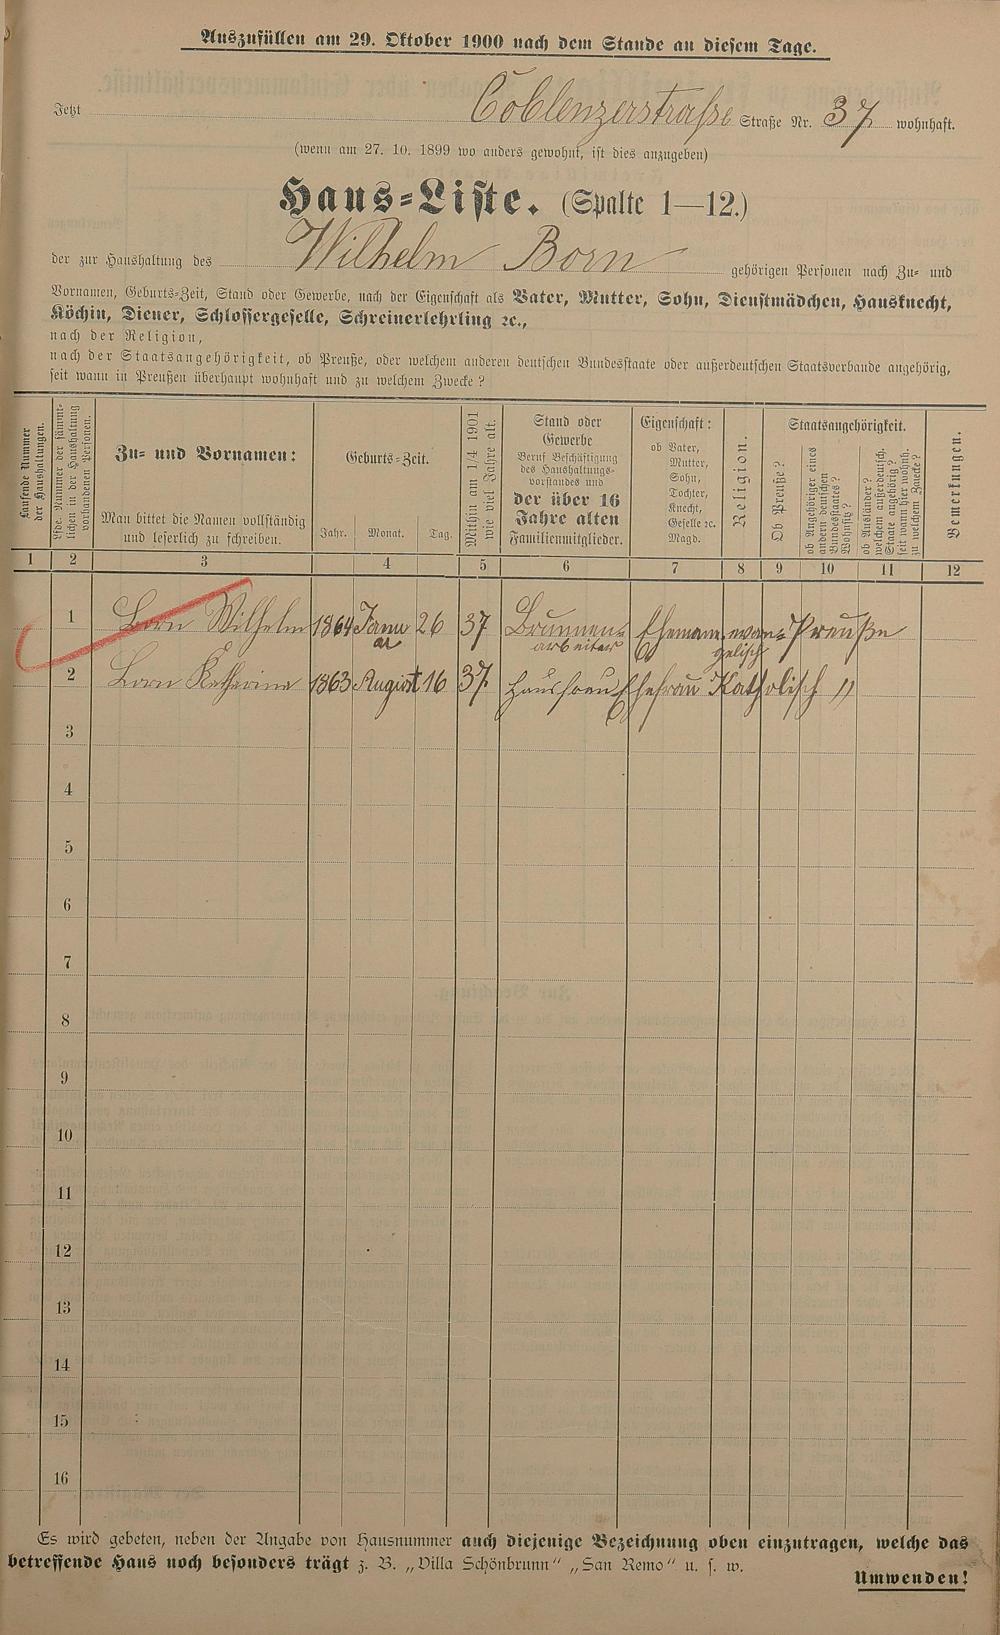 Auszufüllen am 29. Oktober 1900 nach dem Stande an diesem Tage.
Jetzt Coblenzerstraße Straße Nr. 37 wohnhaft.
(wenn am 27. 10. 1899 wo anders gewohnt, ist dies anzugeben)
Haus-Liste. (Spalte 1—12.)
der zur Haushaltung des Wilhelm Born gehörigen Personen nach Zu- und
Vornamen, Geburts-Zeit, Stand oder Gewerbe, nach der Eigenschaft als Vater, Mutter, Sohn, Dienstmädchen, Hausknecht,
Köchin, Diener, Schlossergeselle, Schreinerlehrling ꝛc.,
nach der Religion,
nach der Staatsangehörigkeit, ob Preuße, oder welchem anderen deutschen Bundesstaate oder außerdeutschen Staatsverbande angehörig,
seit wann in Preußen überhaupt wohnhaft und zu welchem Zwecke?
Laufende Nummer
der Haushaltungen.
Lfde. Nummer der sämmt-
lichen in der Haushaltung
vorhandenen Personen.
Zu- und Vornamen:
Man bittet die Namen vollständig
und leserlich zu schreiben.
Geburts-Zeit.
Jahr. Monat. Tag.
Mithin am 1/4 1901
wie viel Jahre alt.
Stand oder
Gewerbe
Beruf Beschäftigung
des Haushaltungs-
vorstandes und
der über 16
Jahre alten
Familienmitglieder.
Eigenschaft:
ob Vater,
Mutter,
Sohn,
Tochter,
Knecht,
Geselle ꝛc.
Magd.
Religion.
Staatsangehörigkeit.
Ob Preuße?
ob Angehöriger eines
andern deutschen
Bundesstaates?
Wohnsitz?
ob Ausländer?
welchem außerdeutsch.
Staate angehörig?
seit wann hier wohnh.
zu welchem Zwecke?
Bemerkungen.
1 2 3 4 5 6 7 8 9 10 11 12
1 Born Wilhelm 1864 Janu 26 37 Brunnen- Ehemann evan- Preuße
ar arbeiter gelisch
2 Born Katherine 1863 August 16 37 Hausfrau Ehefrau Katholisch "
3
4
5
6
7
8
9
10
11
12
13
14
15
16
Es wird gebeten, neben der Angabe von Hausnummer auch diejenige Bezeichnung oben einzutragen, welche das
betreffende Haus noch besonders trägt z. B. „Villa Schönbrunn" „San Remo" u. s. w.
Umwenden!